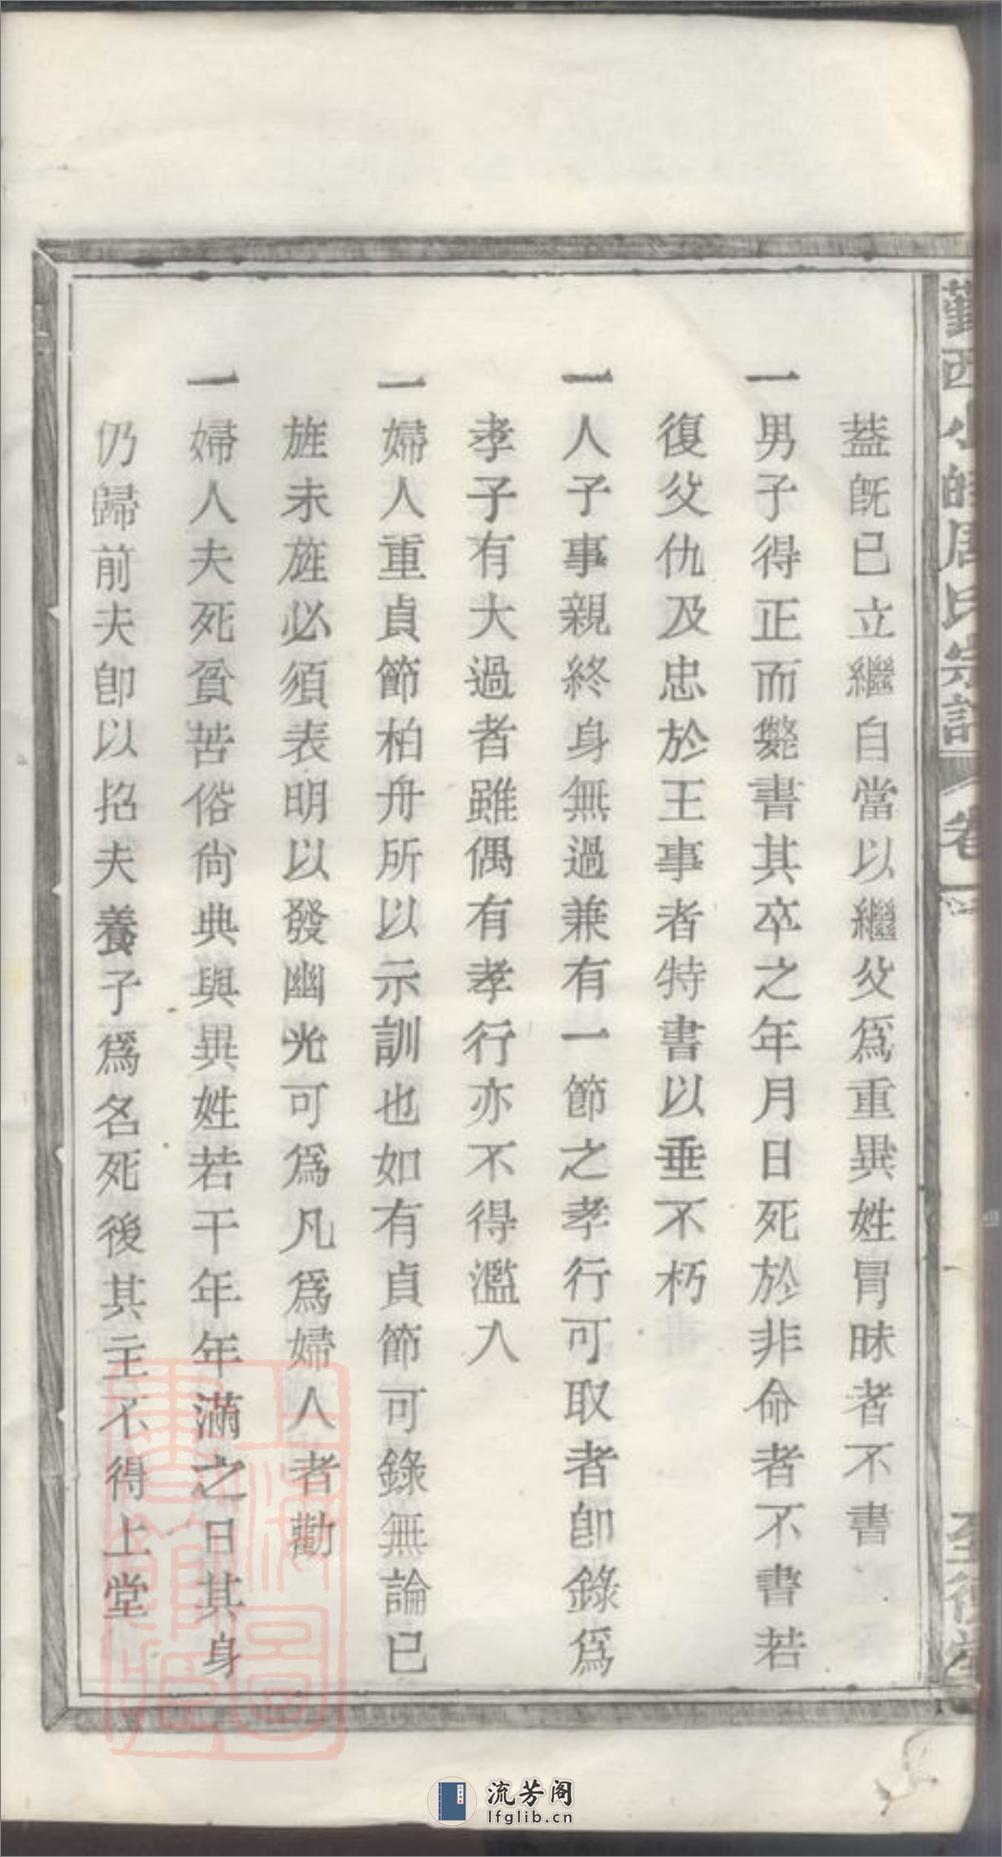 蓋旣已立繼自當以繼父爲重異姓冐昧者不書
一男子得正而斃書其卒之年月日死於非命者不書若
復父仇及忠於王事者特書以垂不朽
一人子事親終身無過兼有一節之孝行可取者卽錄爲
孝子有大過者雖偶有孝行亦不得濫入
一婦人重貞節柏舟所以示訓也如有貞節可錄無論已
旌未旌必須表明以發幽光可爲凡爲婦人者勸
一婦人夫死貧苦俗尙典與異姓若干年年滿之日其身
仍歸前夫卽以招夫養子爲名死後其主不得上堂
西小 周氏宗譜 卷一
至德堂
上海圖書館藏
流芳阁
lfglib.cn